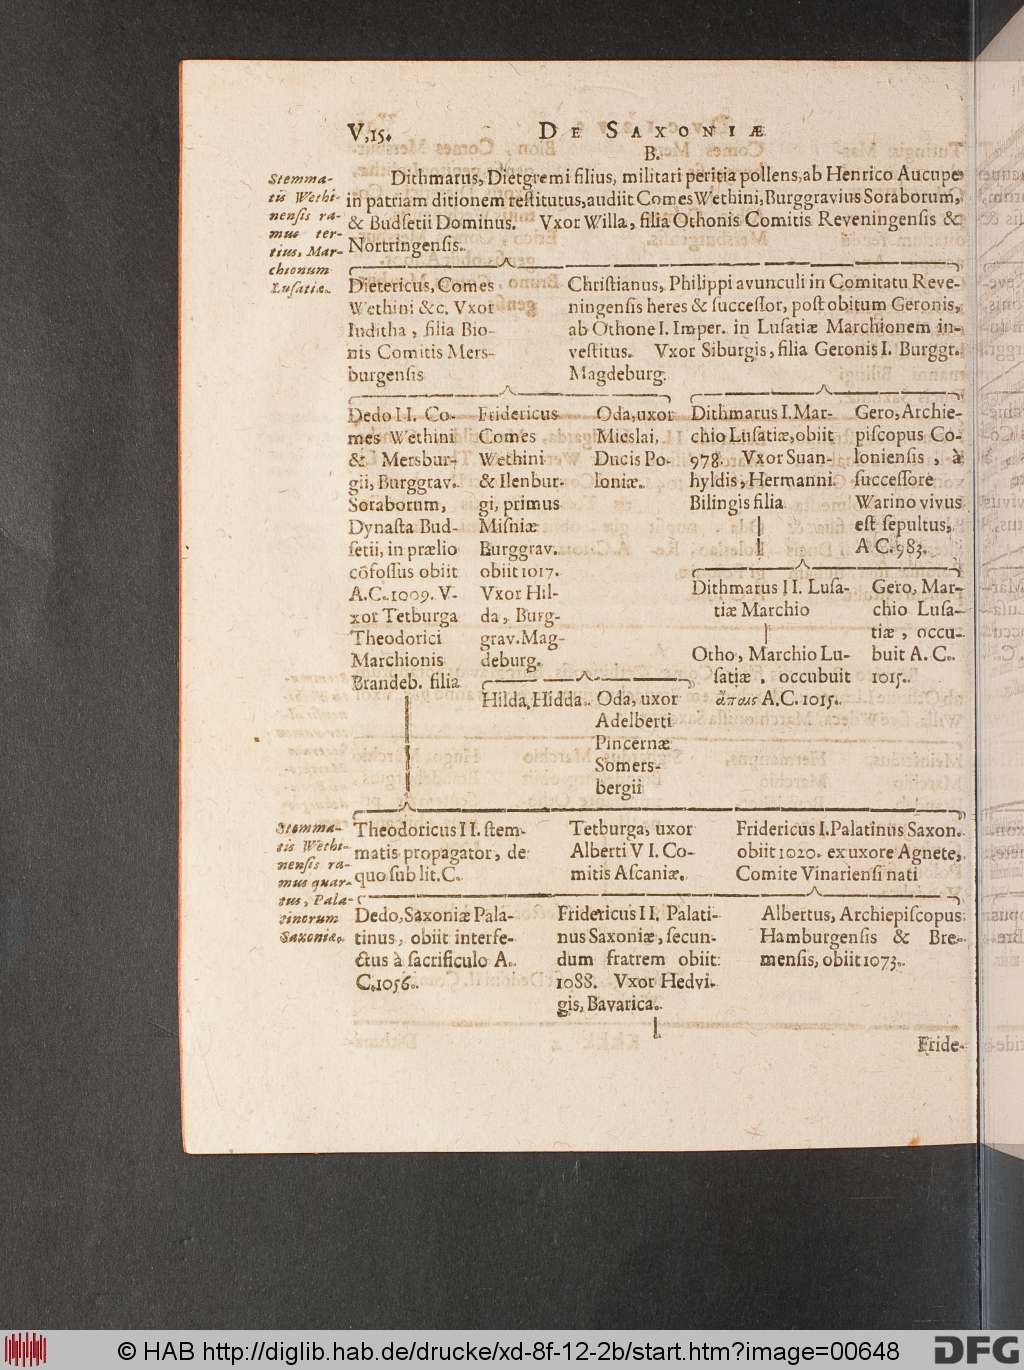 V,15.
DE SAXONIÆ
B.
Stemma-
tis Wethi-
nensis ra-
mus ter-
tius, Mar-
chionum
Lusatiæ.
Dithmarus, Dietgremi filius, militari peritia pollens, ab Henrico Aucupe
in patriam ditionem restitutus, audiit Comes Wethini, Burggravius Soraborum,
& Budsetii Dominus. Vxor Willa, filia Othonis Comitis Reveningensis &
Nortringensis.
Dietericus, Comes
Wethini &c. Vxor
Iuditha, filia Bio-
nis Comitis Mers-
burgensis
Christianus, Philippi avunculi in Comitatu Reve-
ningensis heres & successor, post obitum Geronis,
ab Othone I. Imper. in Lusatiæ Marchionem in-
vestitus. Vxor Siburgis, filia Geronis I. Burggr.
Magdeburg.
Dedo II. Co-
mes Wethini
& Mersbur-
gii, Burggrav.
Soraborum,
Dynasta Bud-
setii, in prælio
cōfossus obiit
A.C. 1009. V-
xor Tetburga
Theodorici
Marchionis
Brandeb. filia
Fridericus
Comes
Wethini
& Ilenbur-
gi, primus
Misniæ
Burggrav.
obiit 1017.
Vxor Hil-
da, Burg-
grav. Mag-
deburg.
Oda, uxor
Mieslai,
Ducis Po-
loniæ.
Dithmarus I. Mar-
chio Lusatiæ, obiit
978. Vxor Suan-
hyldis, Hermanni
Bilingis filia
Gero, Archie-
piscopus Co-
loniensis, à
successore
Warino vivus
est sepultus,
A C. 983.
Dithmarus II. Lusa-
tiæ Marchio
Gero, Mar-
chio Lusa-
tiæ, occu-
buit A. C.
1015.
Otho, Marchio Lu-
satiæ, occubuit
ἄπαις A.C. 1015.
Hilda, Hidda.
Oda, uxor
Adelberti
Pincernæ
Somers-
bergii
Stemma-
tis Wethi-
nensis ra-
mus quar-
tus, Pala-
tinorum
Saxoniæ.
Theodoricus II. stem-
matis propagator, de
quo sub lit. C.
Tetburga, uxor
Alberti VI. Co-
mitis Ascaniæ.
Fridericus I. Palatinus Saxon.
obiit 1020. ex uxore Agnete,
Comite Vinariensi nati
Dedo, Saxoniæ Pala-
tinus, obiit interfe-
ctus à sacrificulo A.
C. 1056.
Fridericus II. Palati-
nus Saxoniæ, secun-
dum fratrem obiit
1088. Vxor Hedvi-
gis, Bavarica.
Albertus, Archiepiscopus
Hamburgensis & Bre-
mensis, obiit 1073.
Fride-
© HAB http://diglib.hab.de/drucke/xd-8f-12-2b/start.htm?image=00648
DFG